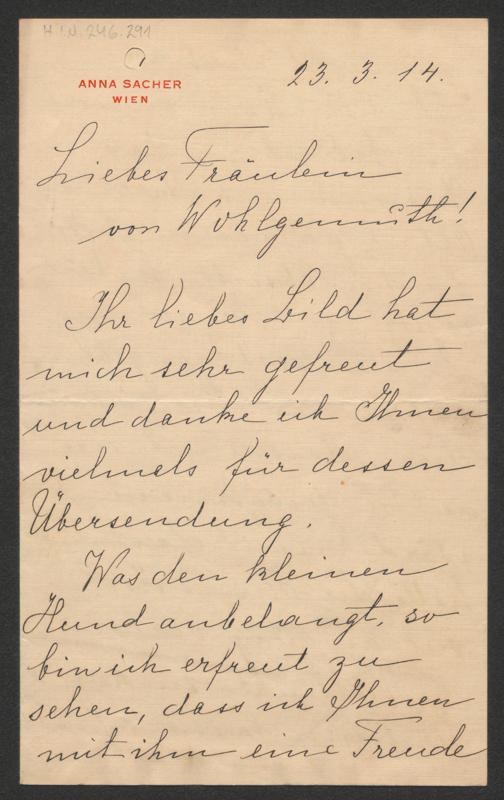 H.I.N. 246.291
ANNA SACHER
WIEN
23. 3. 14.
Liebes Fräulein
von Wohlgemuth!
Ihr liebes Bild hat
mich sehr gefreut
und danke ich Ihnen
vielmals für dessen
Übersendung.
Was den kleinen
Hund anbelangt, so
bin ich erfreut zu
sehen, dass ich Ihnen
mit ihm eine Freude